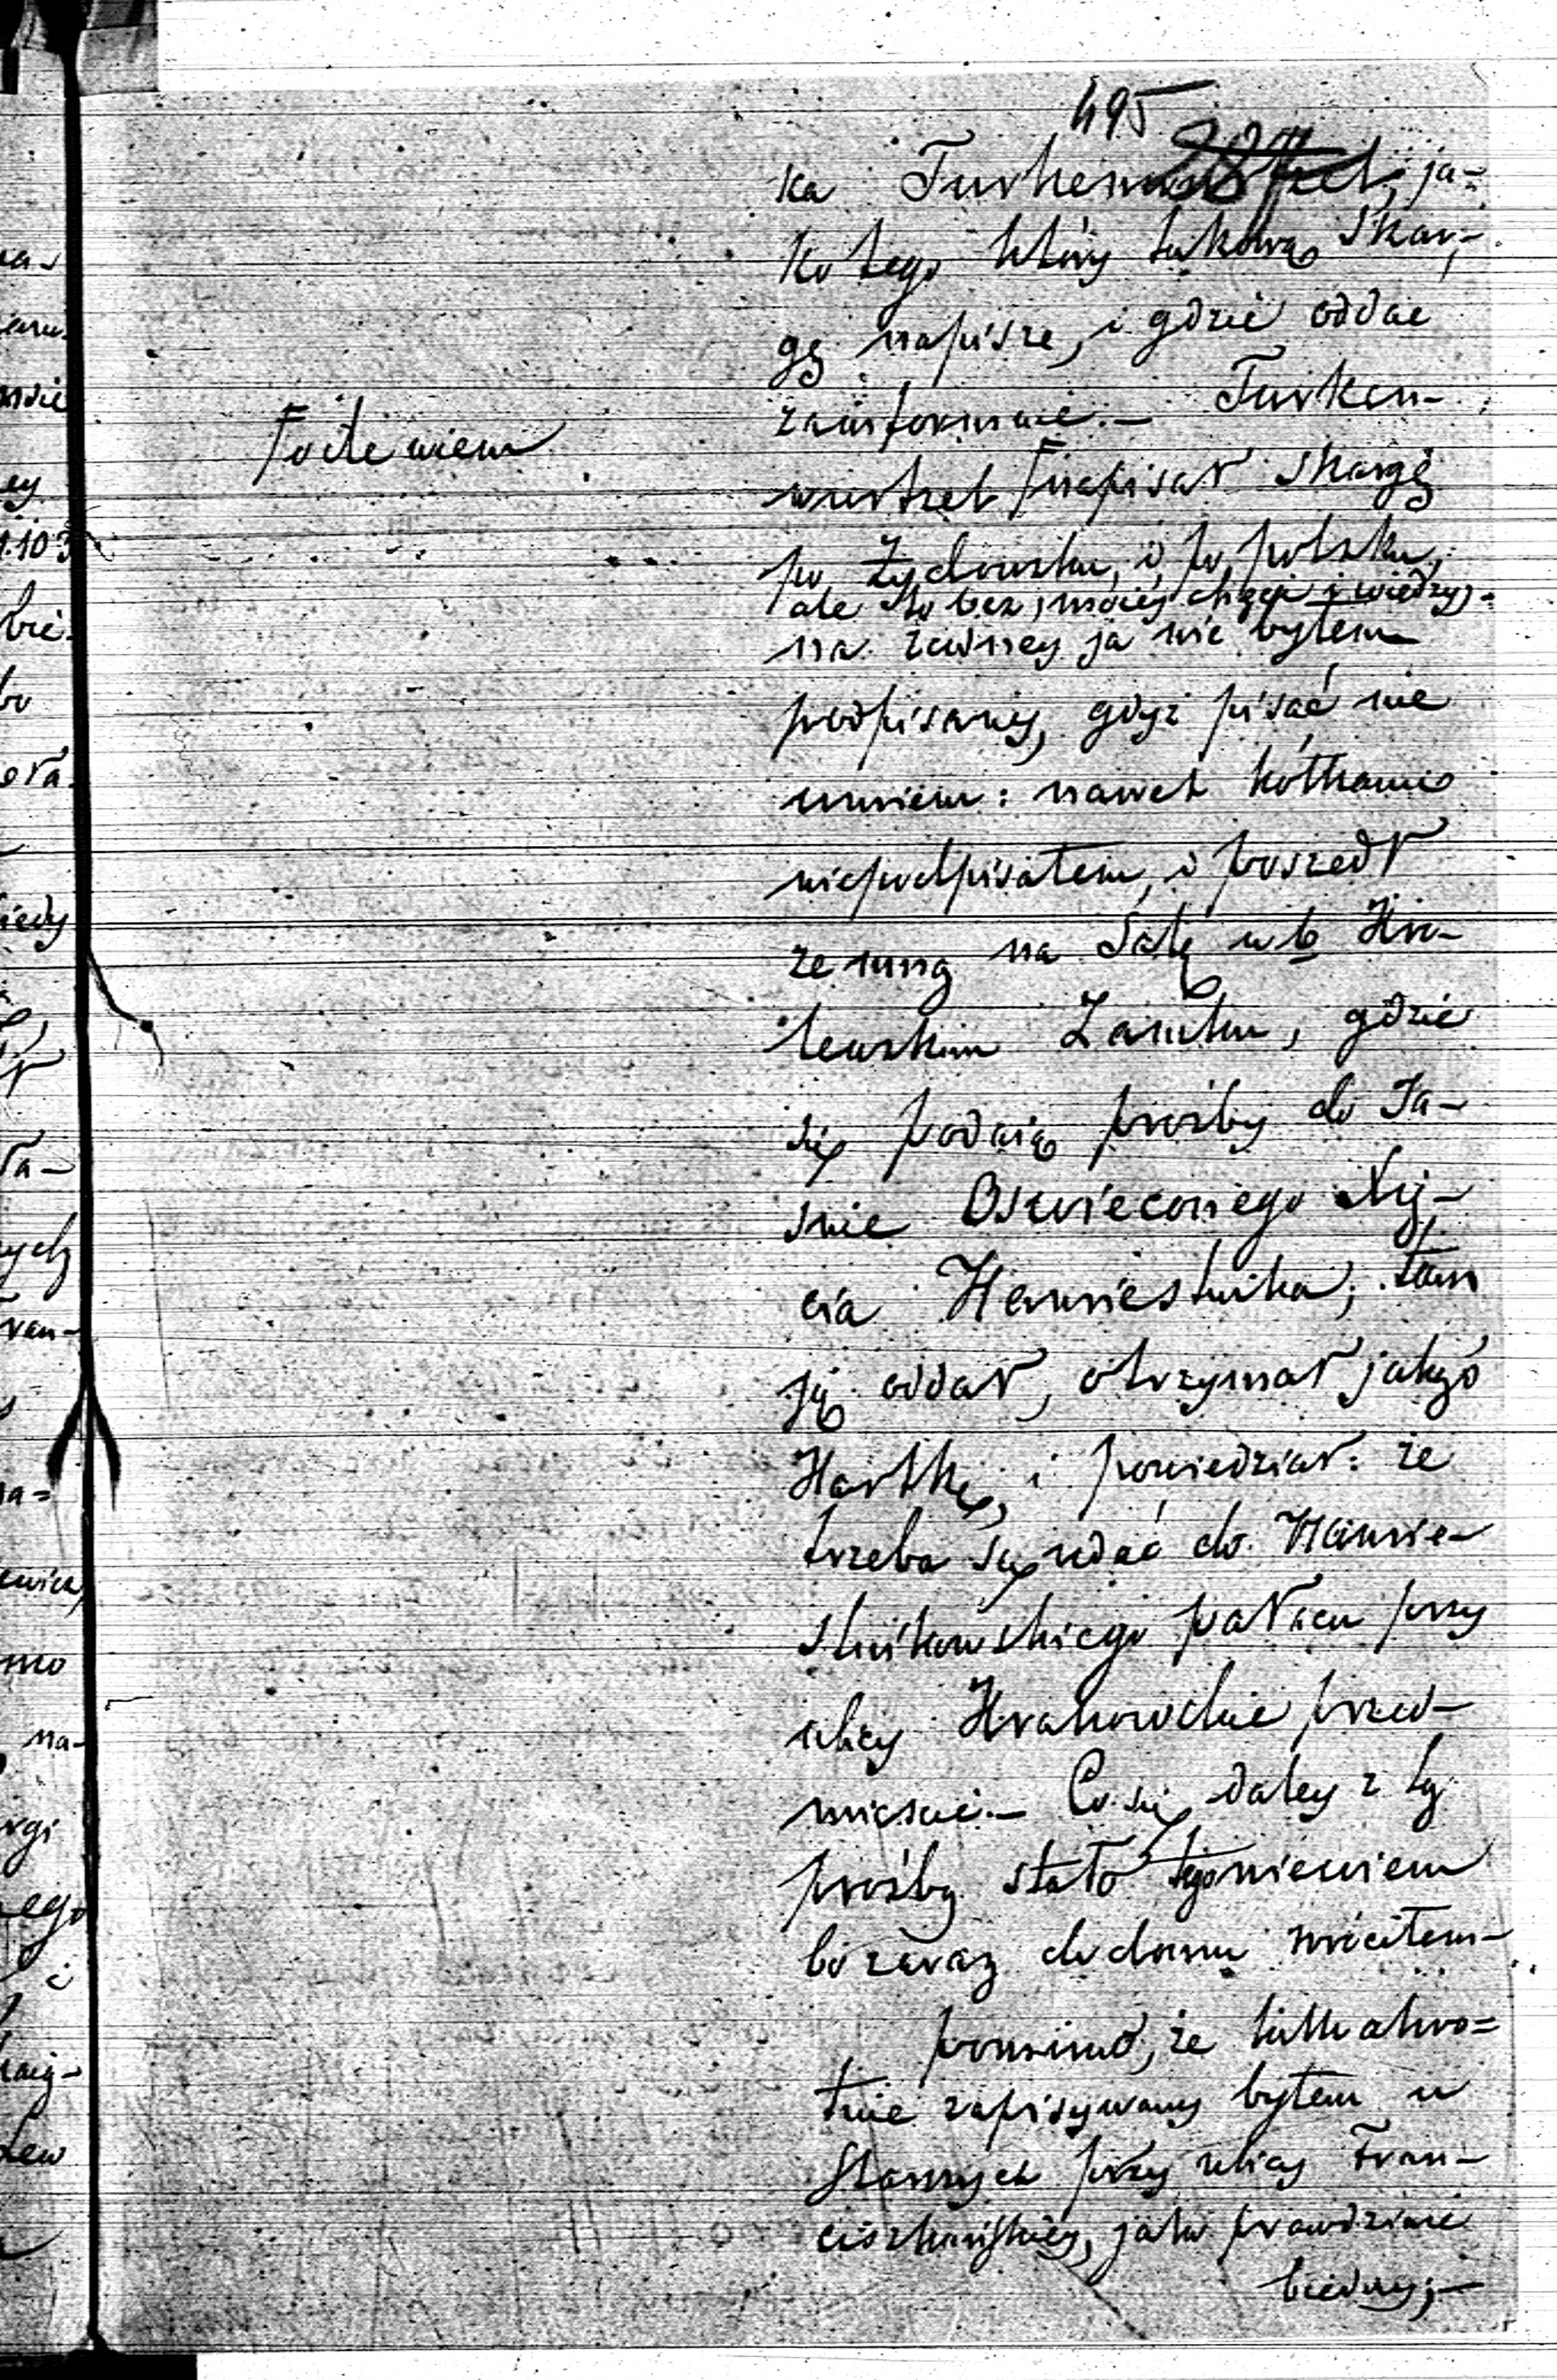 495
ka Turkenwurtzel, ja-
ko tego który takową skar-
gę napisze, i gdzie oddać
zainformuie. — Turken-
Γ o ile wiem
wurtzel Γ napisał skargę
po Żydowsku, i po polsku,
ale to bez moiey chęci i wiedzy,
na żadney ja nie byłem
podpisany, gdyż pisać nie
umiem: nawet kółkami
niepodpisałem, i poszedł
ze mną na Salę w b Kro-
lewskim Zamku, gdzie
się podaią prośby do Ja-
śnie Oswieconego Xię-
cia Namiestnika; tam
ją oddał, otrzymał jakąś
Kartkę, i powiedział: że
trzeba się udać do Namie-
stnikowskiego pałacu przy
ulicy Krakowskie przed-
mieście. — Co się daley z tą
prośbą stało tego niewiem
bo zaraz do domu wróciłem —
pomimo, że kilkakro=
tnie zapisywany byłem w
Stannych przy ulicy Fran-
ciszkańskiey, jako prawdziwie
biedny; —